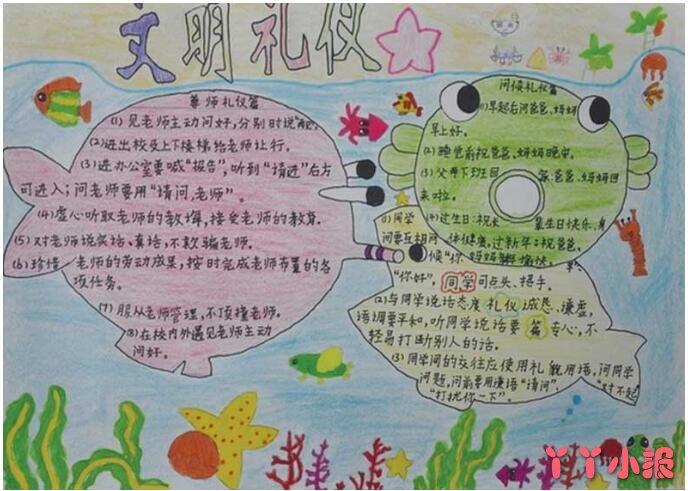 文明礼仪
尊师礼仪篇
(1)见老师主动问好,分别时说
(2)进出校受上下楼梯给老师让行。
(3)进办公室要喊“报告”,听到“请进”后方
可进入;问老师要用“请问,老师”。
(4)虚心听取老师的教诲,接受老师的教育。
(5)对老师说实话、真话,不欺骗老师。
(6)珍惜老师的劳动成果,按时完成老师布置的各
项任务。
(7)服从老师管理,不顶撞老师。
(8)在校内外遇见老师主动
问好。
问候礼仪篇
(1)早起右问爸爸、妈妈
早上好。
(2)睡觉前祝爸爸、妈妈晚安。
(3)父母下班回 爸爸、妈妈回
来啦。
(4)过生日:祝长 生日快乐、身
体健康,过新年:祝爸爸、
妈妈 愉快
同学礼仪篇
(1)同学
间要互相问
候“你
“你好”, 可点头、招手。
(2)与同学说话态度 诚恳、谦虚,
语调要平和,听同学说话要 专心,不
轻易打断别人的话。
(3)同学间的交往应使用礼貌用语,问同学
问题,问前要用谦语“请问”、“对不起”
“打扰你一下”。
丫丫小报